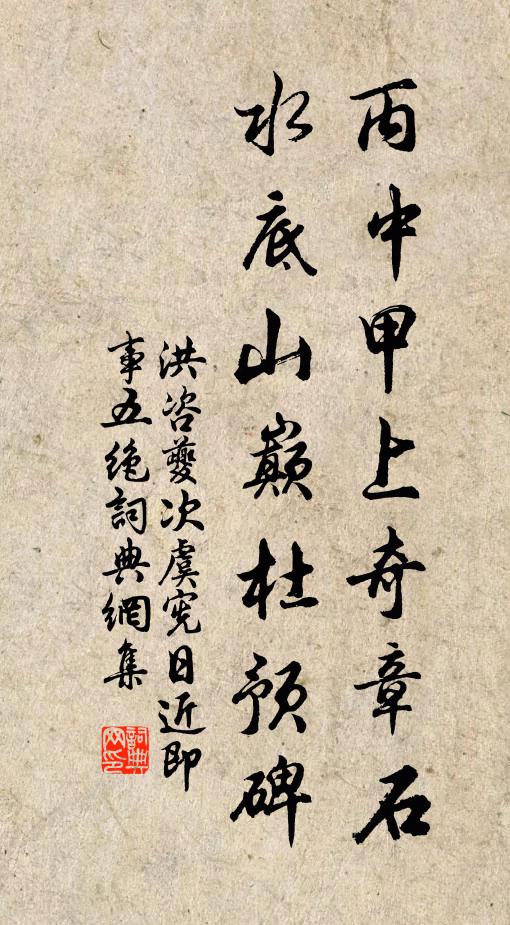 丙中甲上奇章石
水底山巅杜预碑
洪咨夔次虞宪日近即
事五绝詞典網集
詞典网印